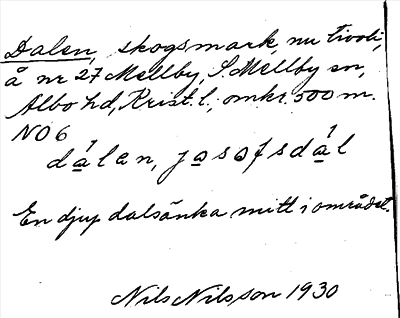 Dalen, skogsmark, nu tivoli,
å nr 27 Mellby, S. Mellby sn,
Albo hd, Krist. l., omkr. 500 m.
NO 6
dalen, josefsdal
En djup dalsänka mitt i området.
Nils Nilsson 1930